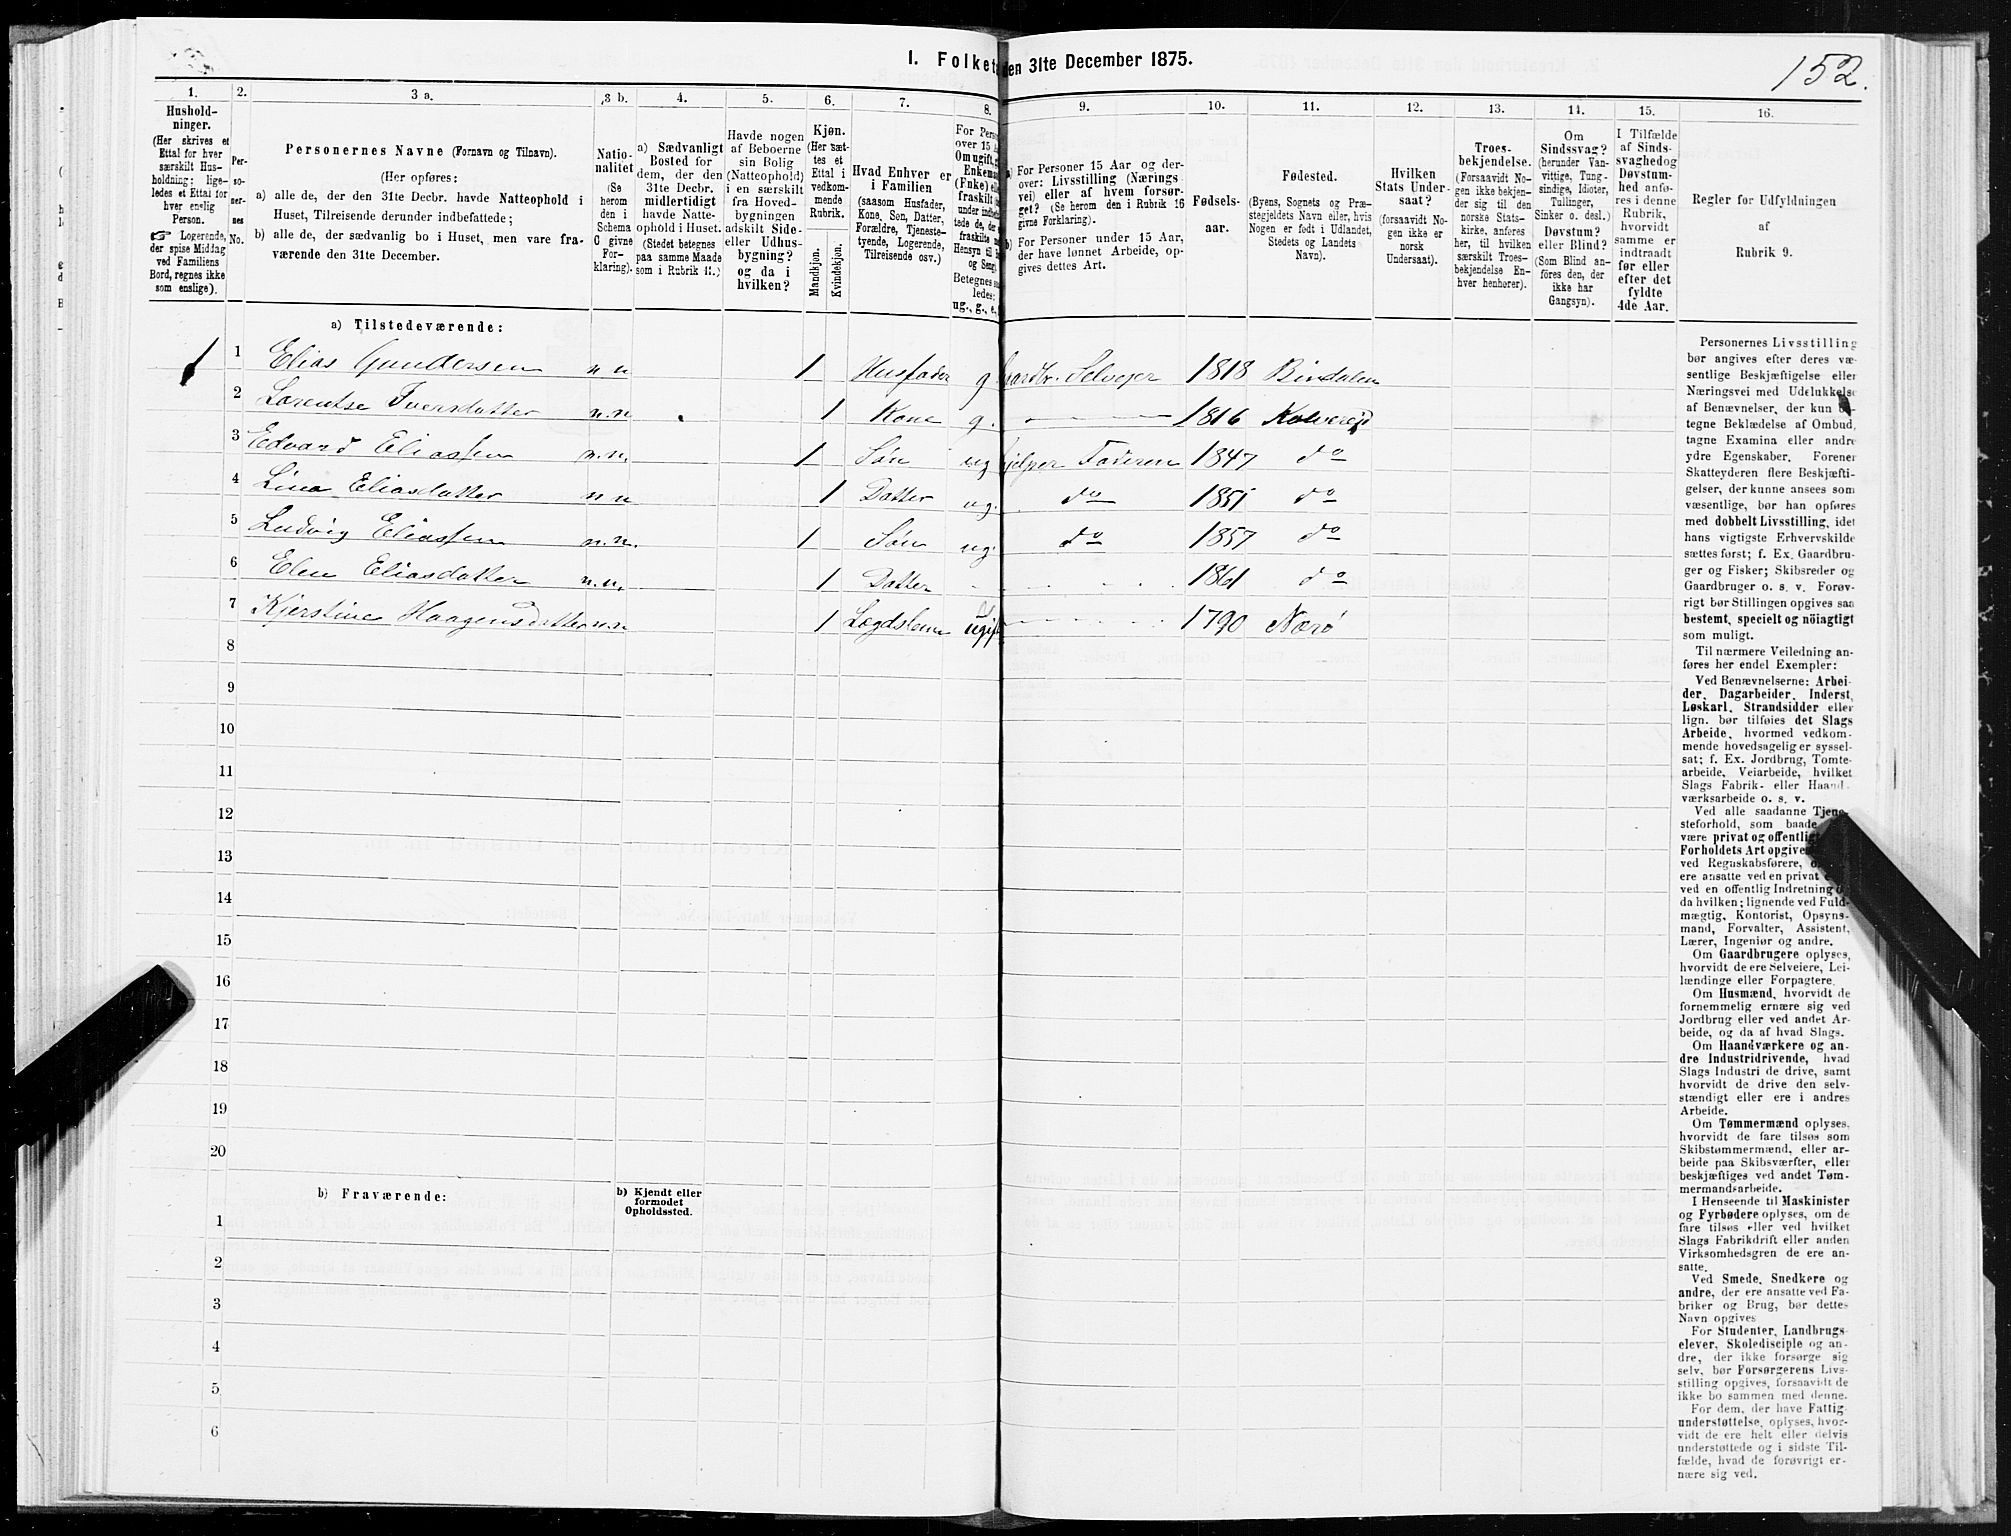 1. Folket
den 31te December 1875.
152.
1. 2. 3 a. 3 b. 4. 5. 6. 7. 8. 9. 10. 11. 12. 13. 14. 15. 16.
Hushold-
ninger.
(Her skrives et
Ettal for hver
særskilt Hus-
holdning; lige-
ledes et Ettal for
hver enslig
Person.
☞ Logerende,
der spise Middag
ved Familiens
Bord, regnes ikke
som enslige).
Per-
so-
ner-
nes
No.
Personernes Navne (Fornavn og Tilnavn).
(Her opføres:
a) alle de, der den 31te Decbr. havde Natteophold i
Huset, Tilreisende derunder indbefattede;
b) alle de, der sædvanlig bo i Huset, men vare fra-
værende den 31te December.
Natio-
nalitet
(Se
herom
den i
Schema
C givne
For-
klaring).
a) Sædvanligt
Bosted for
dem, der den
31te Decbr.
midlertidigt
havde Natte-
ophold i Huset.
(Stedet betegnes
paa samme Maade
som i Rubrik 11.)
Havde nogen
af Beboerne
sin Bolig
(Natteophold)
i en særskilt
fra Hoved-
bygningen
adskilt Side-
eller Udhus-
bygning?
og da i
hvilken?
Kjøn.
(Her sæt-
tes et
Ettal i
vedkom-
mende
Rubrik.
Mandkjøn.
Kvindekjøn.
Hvad Enhver er
i Familien
(saasom Husfader,
Kone, Søn, Datter,
Forældre, Tjeneste-
tyende, Logerende,
Tilreisende osv.)
For Pers
over 15
Om ugift,
Enkem
(Enke) e
fraskilt
under indbe
tede de, der
fraskilte
Hensyn til
og Seng.
Betegnes s
ledes:
ug., g., e.,
a) For Personer 15 Aar og der-
over: Livsstilling (Nærings-
vei) eller af hvem forsør-
get? (Se herom den i Rubrik 16
givne Forklaring).
b) For Personer under 15 Aar,
der have lønnet Arbeide, op-
gives dettes Art.
Fødsels-
aar.
Fødested.
(Byens, Sognets og Præ-
stegjeldets Navn eller, hvis
Nogen er født i Udlandet,
Stedets og Landets
Navn).
Hvilken
Stats Under-
saat?
(forsaavidt No-
gen ikke er
norsk
Undersaat).
Troes-
bekjendelse.
(Forsaavidt No-
gen ikke bekjen-
der sig til den
norske Stats-
kirke, anføres
her, til hvilken
særskilt Troes-
bekjendelse En-
hver henhører).
Om
Sindssvag?
(herunder Van-
vittige, Tung-
sindige, Idioter,
Tullinger,
Sinker o. desl.)
Døvstum?
eller Blind?
(Som Blind an-
føres den, der
ikke har
Gangsyn).
I Tilfælde
af Sinds-
svaghed og
Døvstum-
hed anfø-
res i denne
Rubrik,
hvorvidt
samme er
indtraadt
før eller
efter det
fyldte
4de Aar.
Regler for Udfyldningen
af
Rubrik 9.
a) Tilstedeværende:
1 1 Elias Gundersen n n 1 Husfader g Gaardbr. Selveyer 1818 Bindalen
2 Lorentse Iversdatter n.n 1 Kone g. 1816 Kolvereid
3 Edvard Eliassen n.n. 1 Søn ug hjelper Faderen 1847 do
4 Lina Eliasdatter n n 1 Datter ug. do 1851 do
5 Ludvig Eliassen n.n. 1 Søn ug. do 1857 do
6 Elen Eliasdatter n.n. 1 Datter - 1861 do
7 Kjerstine Haagensdatter n.n 1 Lægdslem ugift 1790 Nærø
8
9
10
11
12
13
14
15
16
17
18
19
20
b) Fraværende:
b) Kjendt eller
formodet
Opholdssted.
1
2
3
4
5
6
Personernes Livsstilling
bør angives efter deres væ-
sentlige Beskjæftigelse eller
Næringsvei med Udelukkelse
af Benævnelser, der kun be-
tegne Beklædelse af Ombud,
tagne Examina eller andre
ydre Egenskaber. Forener
Skatteyderen flere Beskjæfti-
gelser, der kunne ansees som
væsentlige, bør han opføres
med dobbelt Livsstilling, idet
hans vigtigste Erhvervskilde
sættes først; f. Ex. Gaardbru-
ger og Fisker; Skibsreder og
Gaardbruger o. s. v. Forøv-
rigt bør Stillingen opgives saa
bestemt, specielt og nöiagtigt
som muligt.
Til nærmere Veiledning an-
føres her endel Exempler:
Ved Benævnelserne: Arbei-
der, Dagarbeider, Inderst,
Løskarl, Strandsidder eller
lign. bør tilføies det Slags
Arbeide, hvormed vedkom-
mende hovedsagelig er syssel-
sat; f. Ex. Jordbrug, Tomte-
arbeide, Veiarbeide, hvilket
Slags Fabrik- eller Haand-
værksarbeide o. s. v.
Ved alle saadanne Tjene-
steforhold, som baade
være privat og offentlig
Forholdets Art opgives
ved Regnskabsførere,
ere ansatte ved en privat
ved en offentlig Indretning
da hvilken; lignende ved Fuld-
mægtig, Kontorist, Opsyns-
mand, Forvalter, Assistent,
Lærer, Ingeniør og andre.
Om Gaardbrugere oplyses,
hvorvidt de ere Selveiere, Lei-
lændinge eller Forpagtere.
Om Husmænd, hvorvidt de
fornemmelig ernære sig ved
Jordbrug eller ved andet Ar-
beide, og da af hvad Slags.
Om Haandværkere og an-
dre Industridrivende, hvad
Slags Industri de drive, samt
hvorvidt de drive den selv-
stændigt eller ere i andres
Arbeide.
Om Tømmermænd oplyses,
hvorvidt de fare tilsøs som
Skibstømmermænd, eller ar-
beide paa Skibsværfter, eller
beskjæftiges ved andet Tøm-
mermandsarbeide.
I Henseende til Maskinister
og Fyrbødere oplyses, om de
fare tilsøs eller ved hvilket
Slags Fabrikdrift eller anden
Virksomhedsgren de ere an-
satte.
Ved Smede, Snedkere og
andre, der ere ansatte ved Fa-
briker og Brug, bør dettes
Navn opgives
For Studenter, Landbrugs-
elever, Skoledisciple og an-
dre, der ikke forsørge sig
selv, bør Forsørgerens Livs-
stilling opgives, forsaavidt de
ikke bo sammen med denne.
For dem, der have Fattig-
understøttelse, oplyses, hvor-
vidt de ere helt eller delvis
understøttede og i sidste Til-
fælde, hvad de forøvrigt er-
nære sig ved.